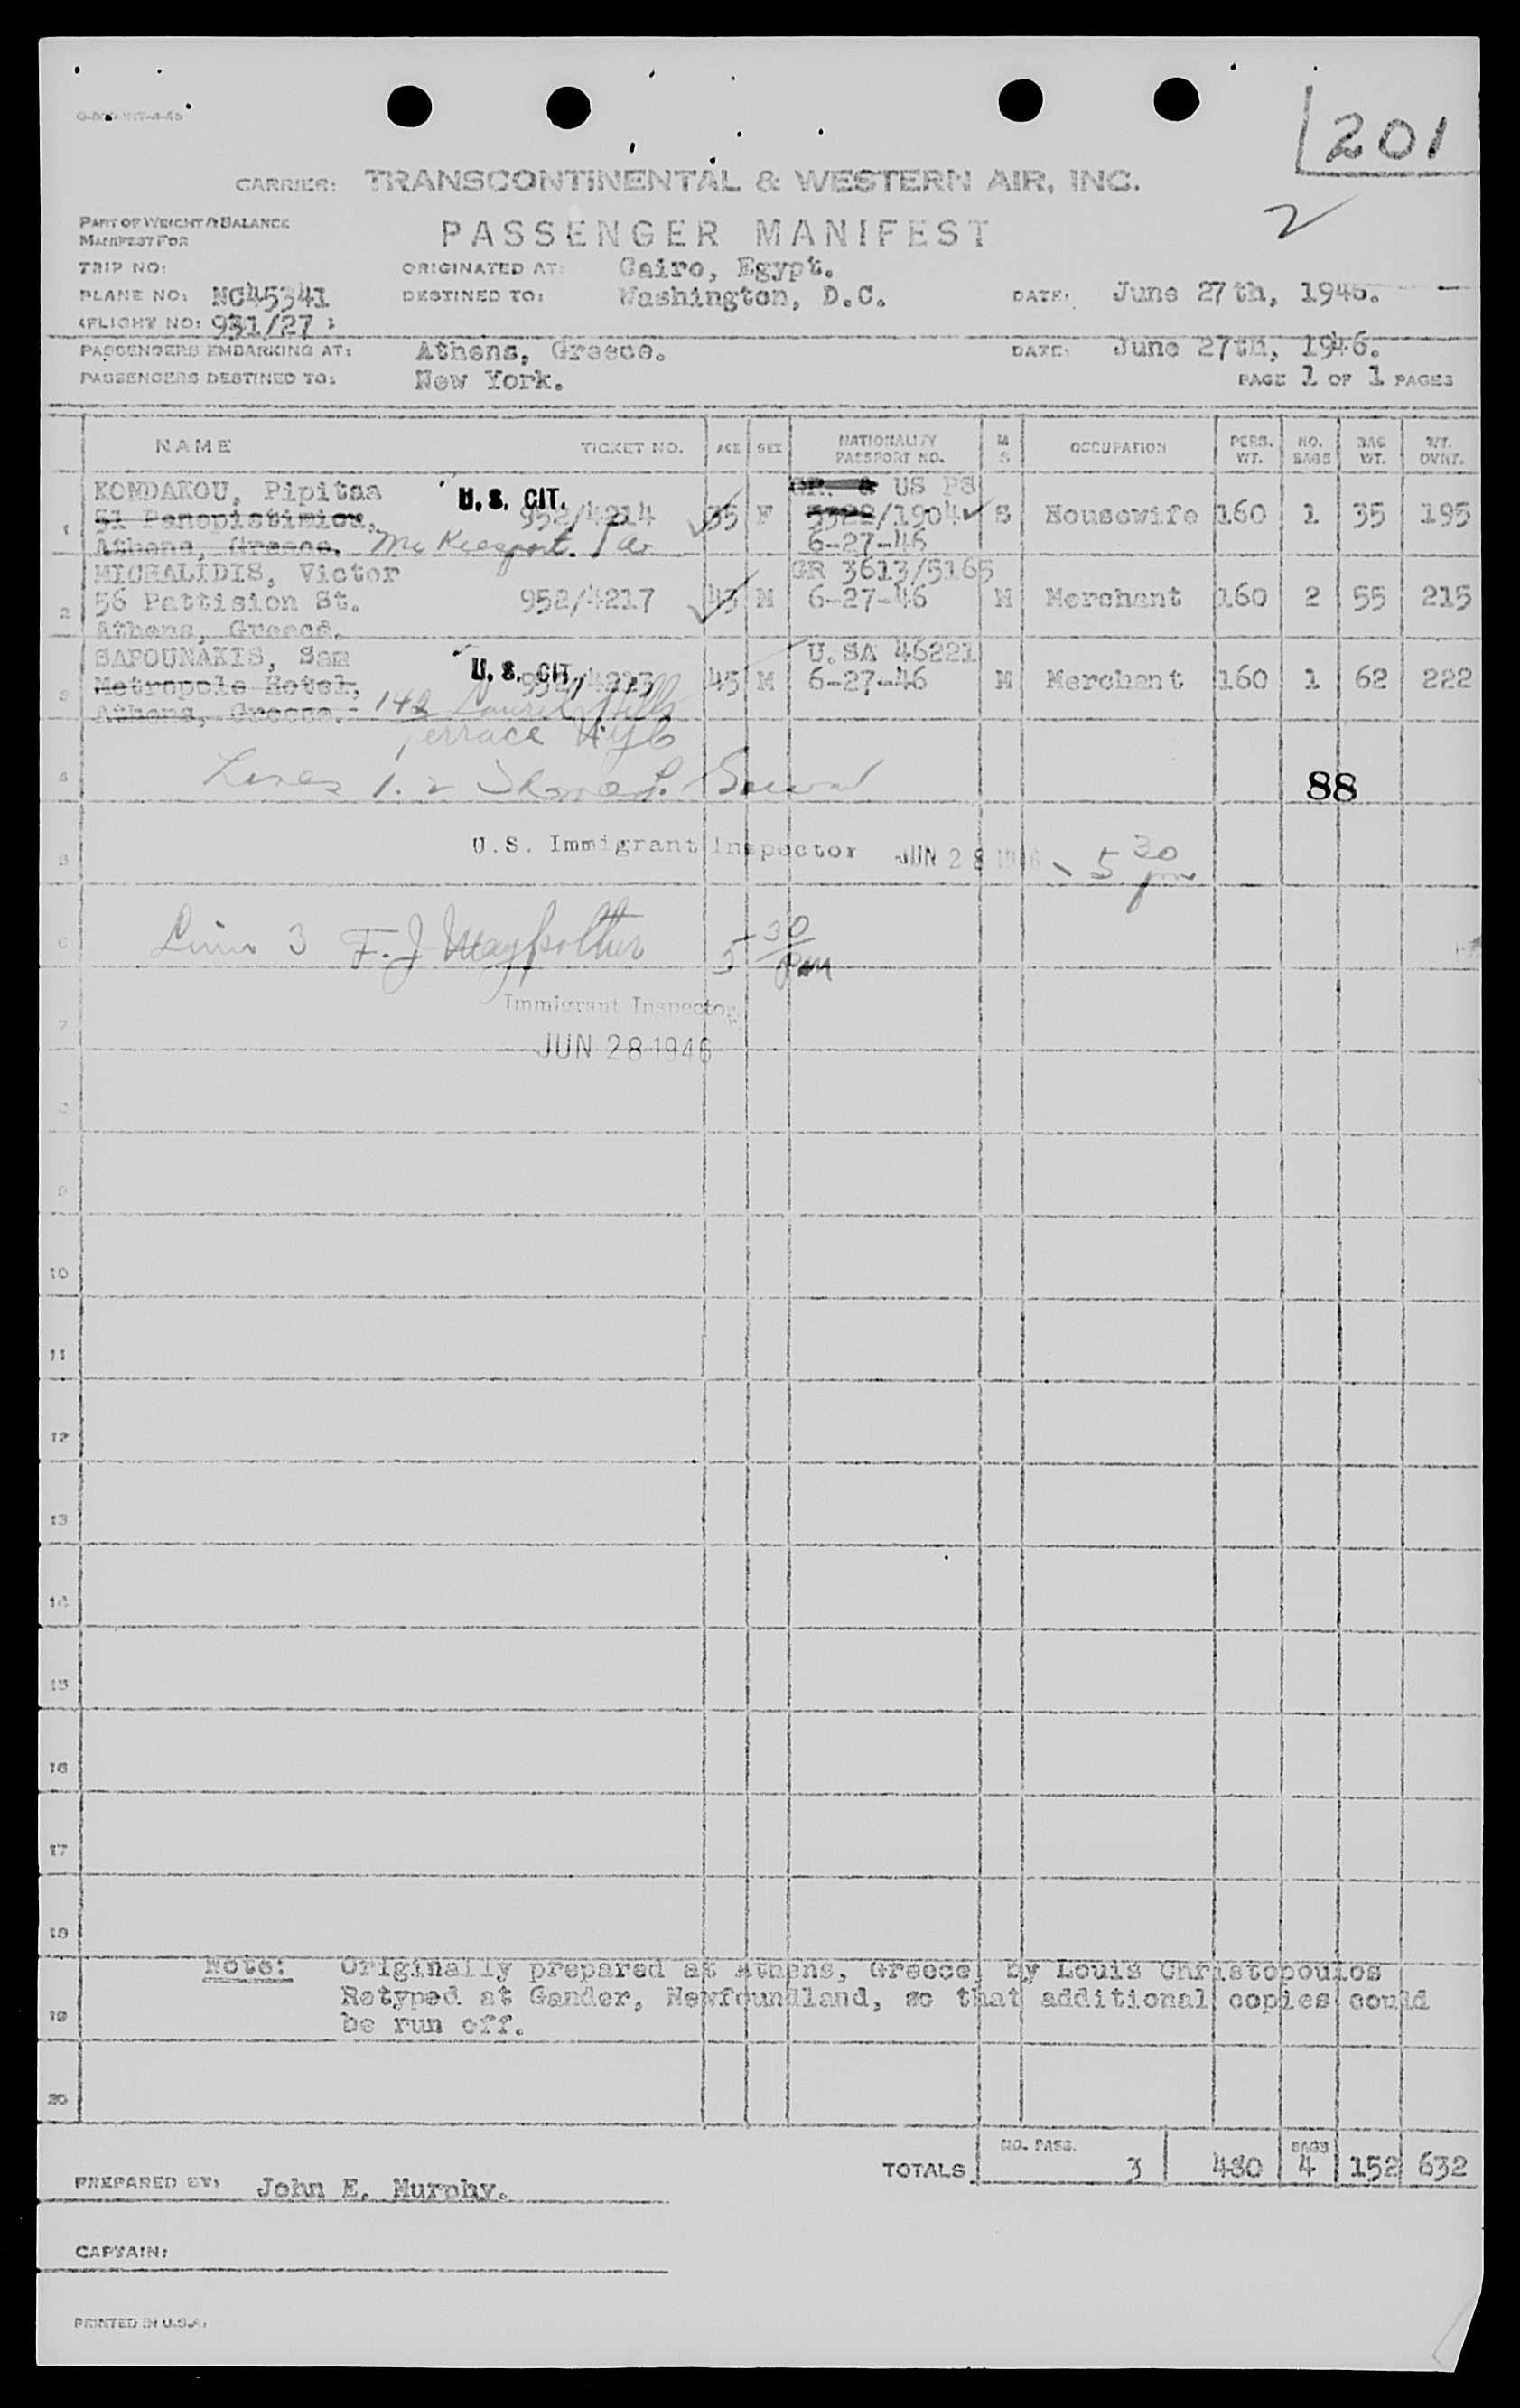 201
CARRIER: TRANSCONTINENTAL & WESTERN AIR, INC.
2
PART OF WEIGHT & BALANCE
MANIFEST FOR
PASSENGER MANIFEST
TRIP NO: ORIGINATED AT: Cairo, Egypt.
PLANE NO: NC45341 DESTINED TO: Washington, D.C. DATE: June 27th, 1946.
(FLIGHT NO: 931/27 )
PASSENGERS EMBARKING AT: Athens, Greece. DATE: June 27th, 1946.
PASSENGERS DESTINED TO: New York. PAGE 1 OF 1 PAGES
NAME TICKET NO. AGE SEX NATIONALITY PASSPORT NO. M S OCCUPATION PERS. WT. NO. BAGS BAG WT. WT. OVRT.
KONDAKOU, Pipitsa U.S. CIT. GR. & US PS
1 51 Panepistimiou, 952/4214 35 F 5322/1904 S Housewife 160 1 35 195
Athens, Greece. Mc Keesport. Pa. 6-27-46
MICHALIDIS, Victor GR 3613/5165
2 56 Pattision St. 952/4217 43 M 6-27-46 M Merchant 160 2 55 215
Athens, Greece.
SAPOUNAKIS, Sam U.S. CIT. U.SA 46221
3 Metropole Hotel, 952/4223 45 M 6-27-46 M Merchant 160 1 62 222
Athens, Greece. 142 Laurel Hills
Terrace NYC
4 Lines 1. 2 88
5 U.S. Immigrant Inspector JUN 28 1946 5 30 pm
6 Line 3 F. J. 5 30 pm
Immigrant Inspector
7 JUN 28 1946
8
9
10
11
12
13
14
15
16
17
18
Note: Originally prepared at Athens, Greece, by Louis Christopoulos
19 Retyped at Gander, Newfoundland, so that additional copies could
be run off.
20
TOTALS NO. PASS. 3 480 BAGS 4 152 632
PREPARED BY: John E. Murphy.
CAPTAIN:
PRINTED IN U.S.A.